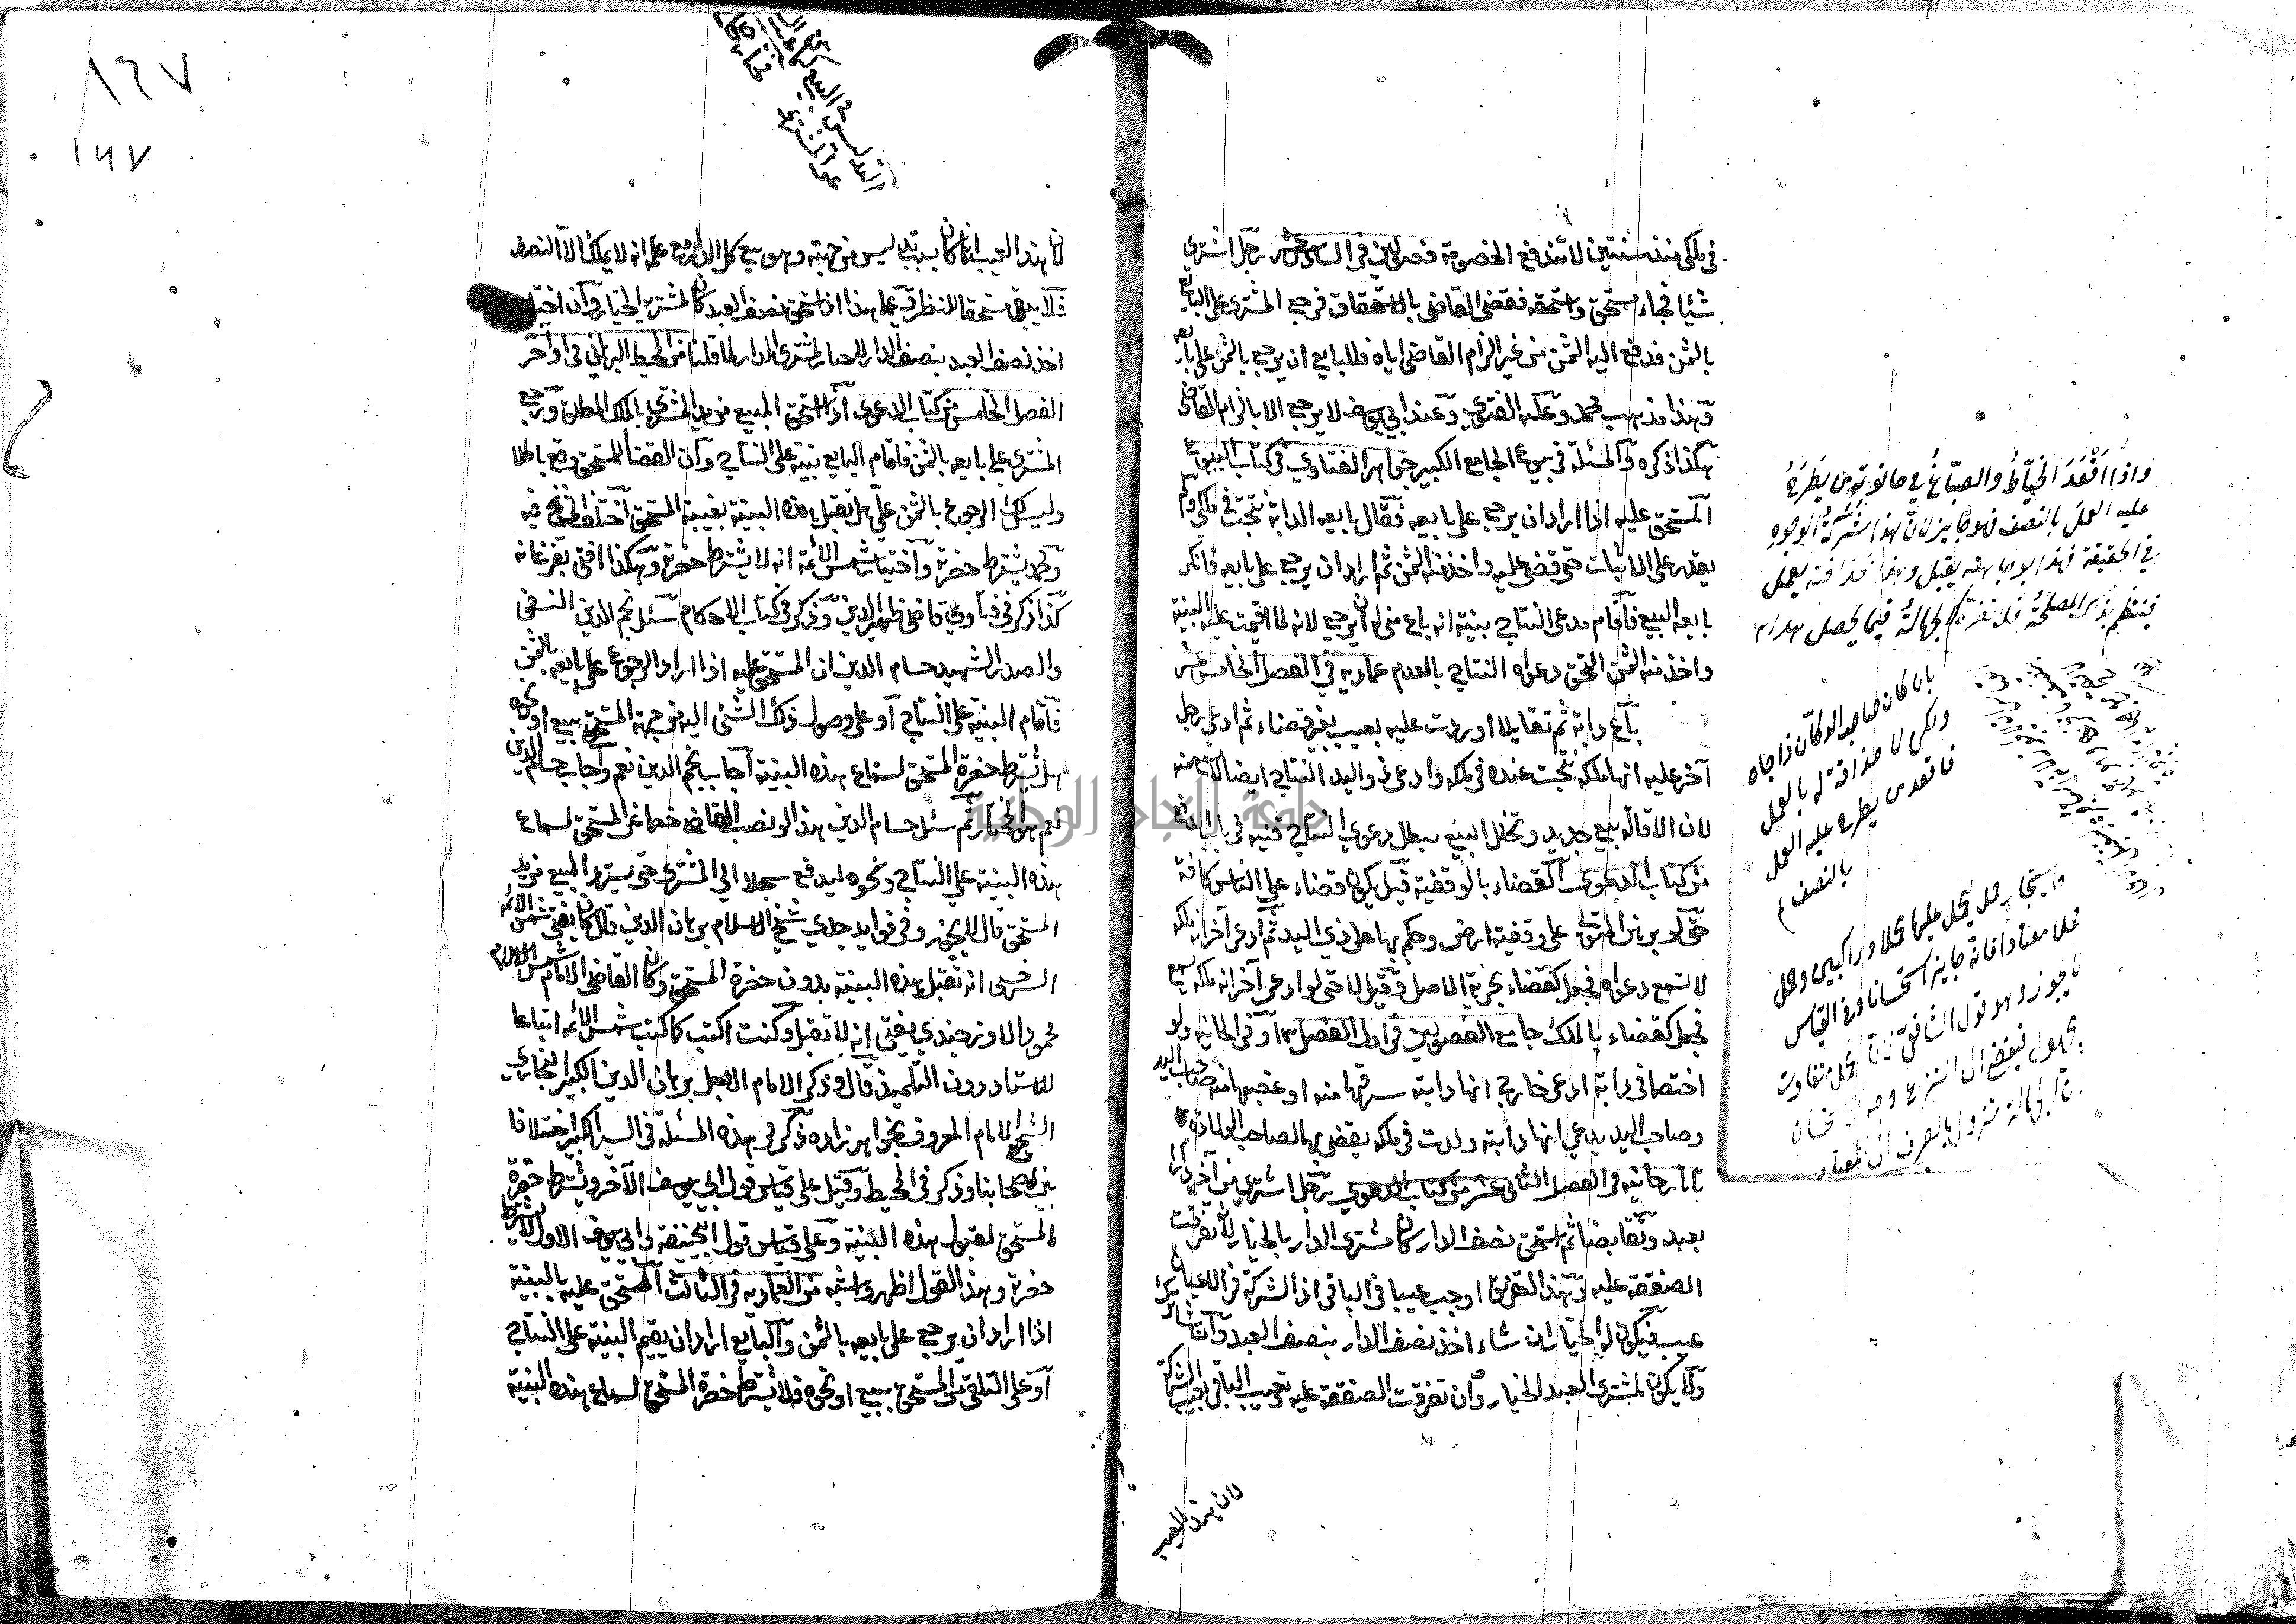 في ملكي منذ سنتين لا تندفع الخصومة فصولين في السادس عشر رجل اشترى
شيئا فجاء مستحق واستحقه فقضى القاضي بالاستحقاق فرجع المشتري على البايع
بالثمن فدفع اليه الثمن من غير الزام القاضي اياه فللبايع ان يرجع بالثمن على بايعه
وهذا مذهب محمد وعليه الفتوى وعند ابي يوسف لا يرجع الا بالزام القاضي
هكذا ذكره والمسئلة في بيوع الجامع الكبير جواهر الفتاوي في كتاب البيوع
المستحق عليه اذا اراد ان يرجع على بايعه فقال بايعه الدابة نتجت في ملكي ولم
يقدر على الاثبات حتى قضي عليه واخذ منه الثمن ثم اراد ان يرجع على بايعه فانكر
بايعه البيع فاقام مدعي النتاج بينة انه باع منه له ان يرجع لانه لما اقيمت عليه البينة
واخذ منه الثمن التحق دعواه النتاج بالعدم عمادية في الفصل الخامس عشر
باع دابة ثم تقايلا او ردت عليه بعيب بغير قضاء ثم ادعى رجل
آخر عليه انها ملكه نتجت عنده في ملكه وادعى ذو اليد النتاج ايضا لا تسمع منه
لان الاقالة بيع جديد وتخلل البيع يبطل دعوى النتاج قنيه في باب الدفع
من كتاب الدعوى القضاء بالوقفية قيل يكون قضاء على الناس كافة
حتى لو برهن المتولي على وقفية ارض وحكم بها على ذي اليد ثم ادعى آخر انه ملكه
لا تسمع دعواه فجعل كقضاء بحرية الاصل وقيل لا حتى لو ادعى آخر انه ملكه يسمع
فجعل كقضاء بالملك جامع الفصولين في اول الفصل وفي الخانية ولو
اختصما في دابة ادعى خارج انها دابته سرقها منه او غصبها منه صاحب اليد
وصاحب اليد يدعي انها دابته ولدت في ملكه يقضى بها لصاحب الولادة
تاتارخانيه في الفصل الثاني عشر من كتاب الدعوى رجل اشترى من آخر دارا
بعبد وتقابضا ثم استحق نصف الدار كان لمشتري الدار بالخيار لانه تفرقت
الصفقة عليه وهذا التفريق اوجب عيبا في الباقي اذ الشركة في الاعيان
عيب فيكون له الخيار ان شاء اخذ نصف الدار بنصف العبد وان شاء ترك
ولا يكون لمشتري العبد الخيار وان تفرقت الصفقة عليه وتعيب الباقي بعيب الشركة
لان هذا العيب
واذا اقعد الخياط والصباغ في حانوته من يطرح
عليه العمل بالنصف فهو جايز لان هذا شركة الوجوه
في الحقيقة فهذا بوجاهته يقبل وهذا بحذاقته يعمل
فينتظم بذلك المصلحة فلا تضره الجهالة فيما يحصل هداية
بان كان صاحب الدكان ذا جاه
ولكن لا حذاقة له بالعمل
فاقعد من يطرح عليه العمل
بالنصف
واستيجار جمل يحمل عليها محملا وراكبين وحمل
محملا معتادا فانه جايز استحسانا وفي القياس
لا يجوز وهو قول الشافعي لان المحمل متفاوت
مجهول فيفضي الى النزاع وجه الاستحسان
ان الجهالة تزول بالصرف الى المعتاد
١٦٧
١٦٧
لان هذا العيب انما كان بسبب ليس من جهته وهو بيع كل الدار مع علمه انه لا يملك الا النصف
فلا يبقى مستحقا للنظر وعلى هذا اذا استحق نصف العبد كان لمشتريه الخيار وان اختار
اخذ نصف العبد بنصف الدار لا خيار لمشتري الدار لما قلنا من المحيط البرهاني في اواخر
الفصل الخامس من كتاب الدعوى اذا استحق المبيع من يد المشتري بالملك المطلق ورجع
المشتري على بايعه بالثمن فاقام البايع بينة على النتاج وان القضاء للمستحق وقع باطلا
وليس لك الرجوع بالثمن علي هل تقبل هذه البينة بغيبة المستحق اختلف المشايخ فيه
وكم يشترط حضرته واختيار شمس الائمة انه لا يشترط حضرته وهكذا افتى بفرغانه
كذا ذكر في فتاوي قاضي ظهير الدين وذكر في كتاب الاحكام سئل نجم الدين النسفي
والصدر الشهيد حسام الدين ان المستحق عليه اذا اراد الرجوع على بايعه بالثمن
فاقام البينة على النتاج او على وصول ذلك الشئ اليه من جهة المستحق ببيع او نحوه
هل يشترط حضرة المستحق لسماع هذه البينة اجاب نجم الدين نعم واجاب حسام الدين
نعم هو المختار ثم سئل حسام الدين هذا لو نصب القاضي خصما عن المستحق لسماع
هذه البينة على النتاج ونحوه ليدفع سجلا الى المشتري حتى يسترد المبيع من يد
المستحق قال لا يجوز وفي فوايد جدي شيخ الاسلام برهان الدين قال كان يفتي شمس الائمة
السرخسي انه تقبل هذه البينة بدون حضرة المستحق وكان القاضي الامام شمس الاسلام
محمود الاوزجندي يفتي انه لا تقبل وكنت اكتب كما كتب شمس الائمة اتباعا
للاستاد دون التلميذ قال وذكر الامام الاجل برهان الدين الكبير البخاري
الشيخ الامام المعروف بخواهر زاده ذكر في هذه المسئلة في السير الكبير اختلافا
بين اصحابنا وذكر في المحيط وقيل على قياس قول ابي يوسف الآخر ويشترط حضرة
المستحق لقبول هذه البينة وعلى قياس قول ابي حنيفة وابي يوسف الاول لا يشترط
حضرته وهذا القول اظهر واشبه من العمادية في الثالث المستحق عليه بالبينة
اذا اراد ان يرجع على بايعه بالثمن والبايع اراد ان يقيم البينة على النتاج
او على التلقي من المستحق ببيع او نحوه فلا يشترط حضرة المستحق لسماع هذه البينة
جامعة النجاح الوطنية